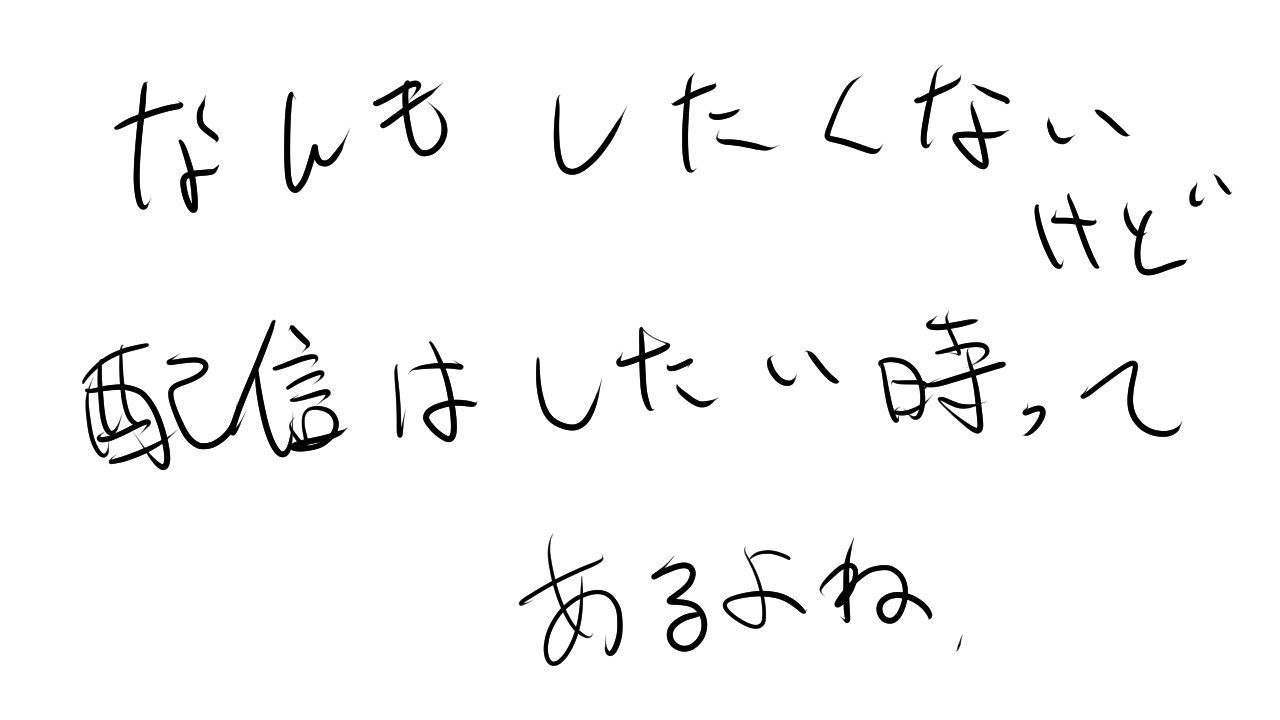 なんもしたくない
けど
配信はしたい時って
あるよね